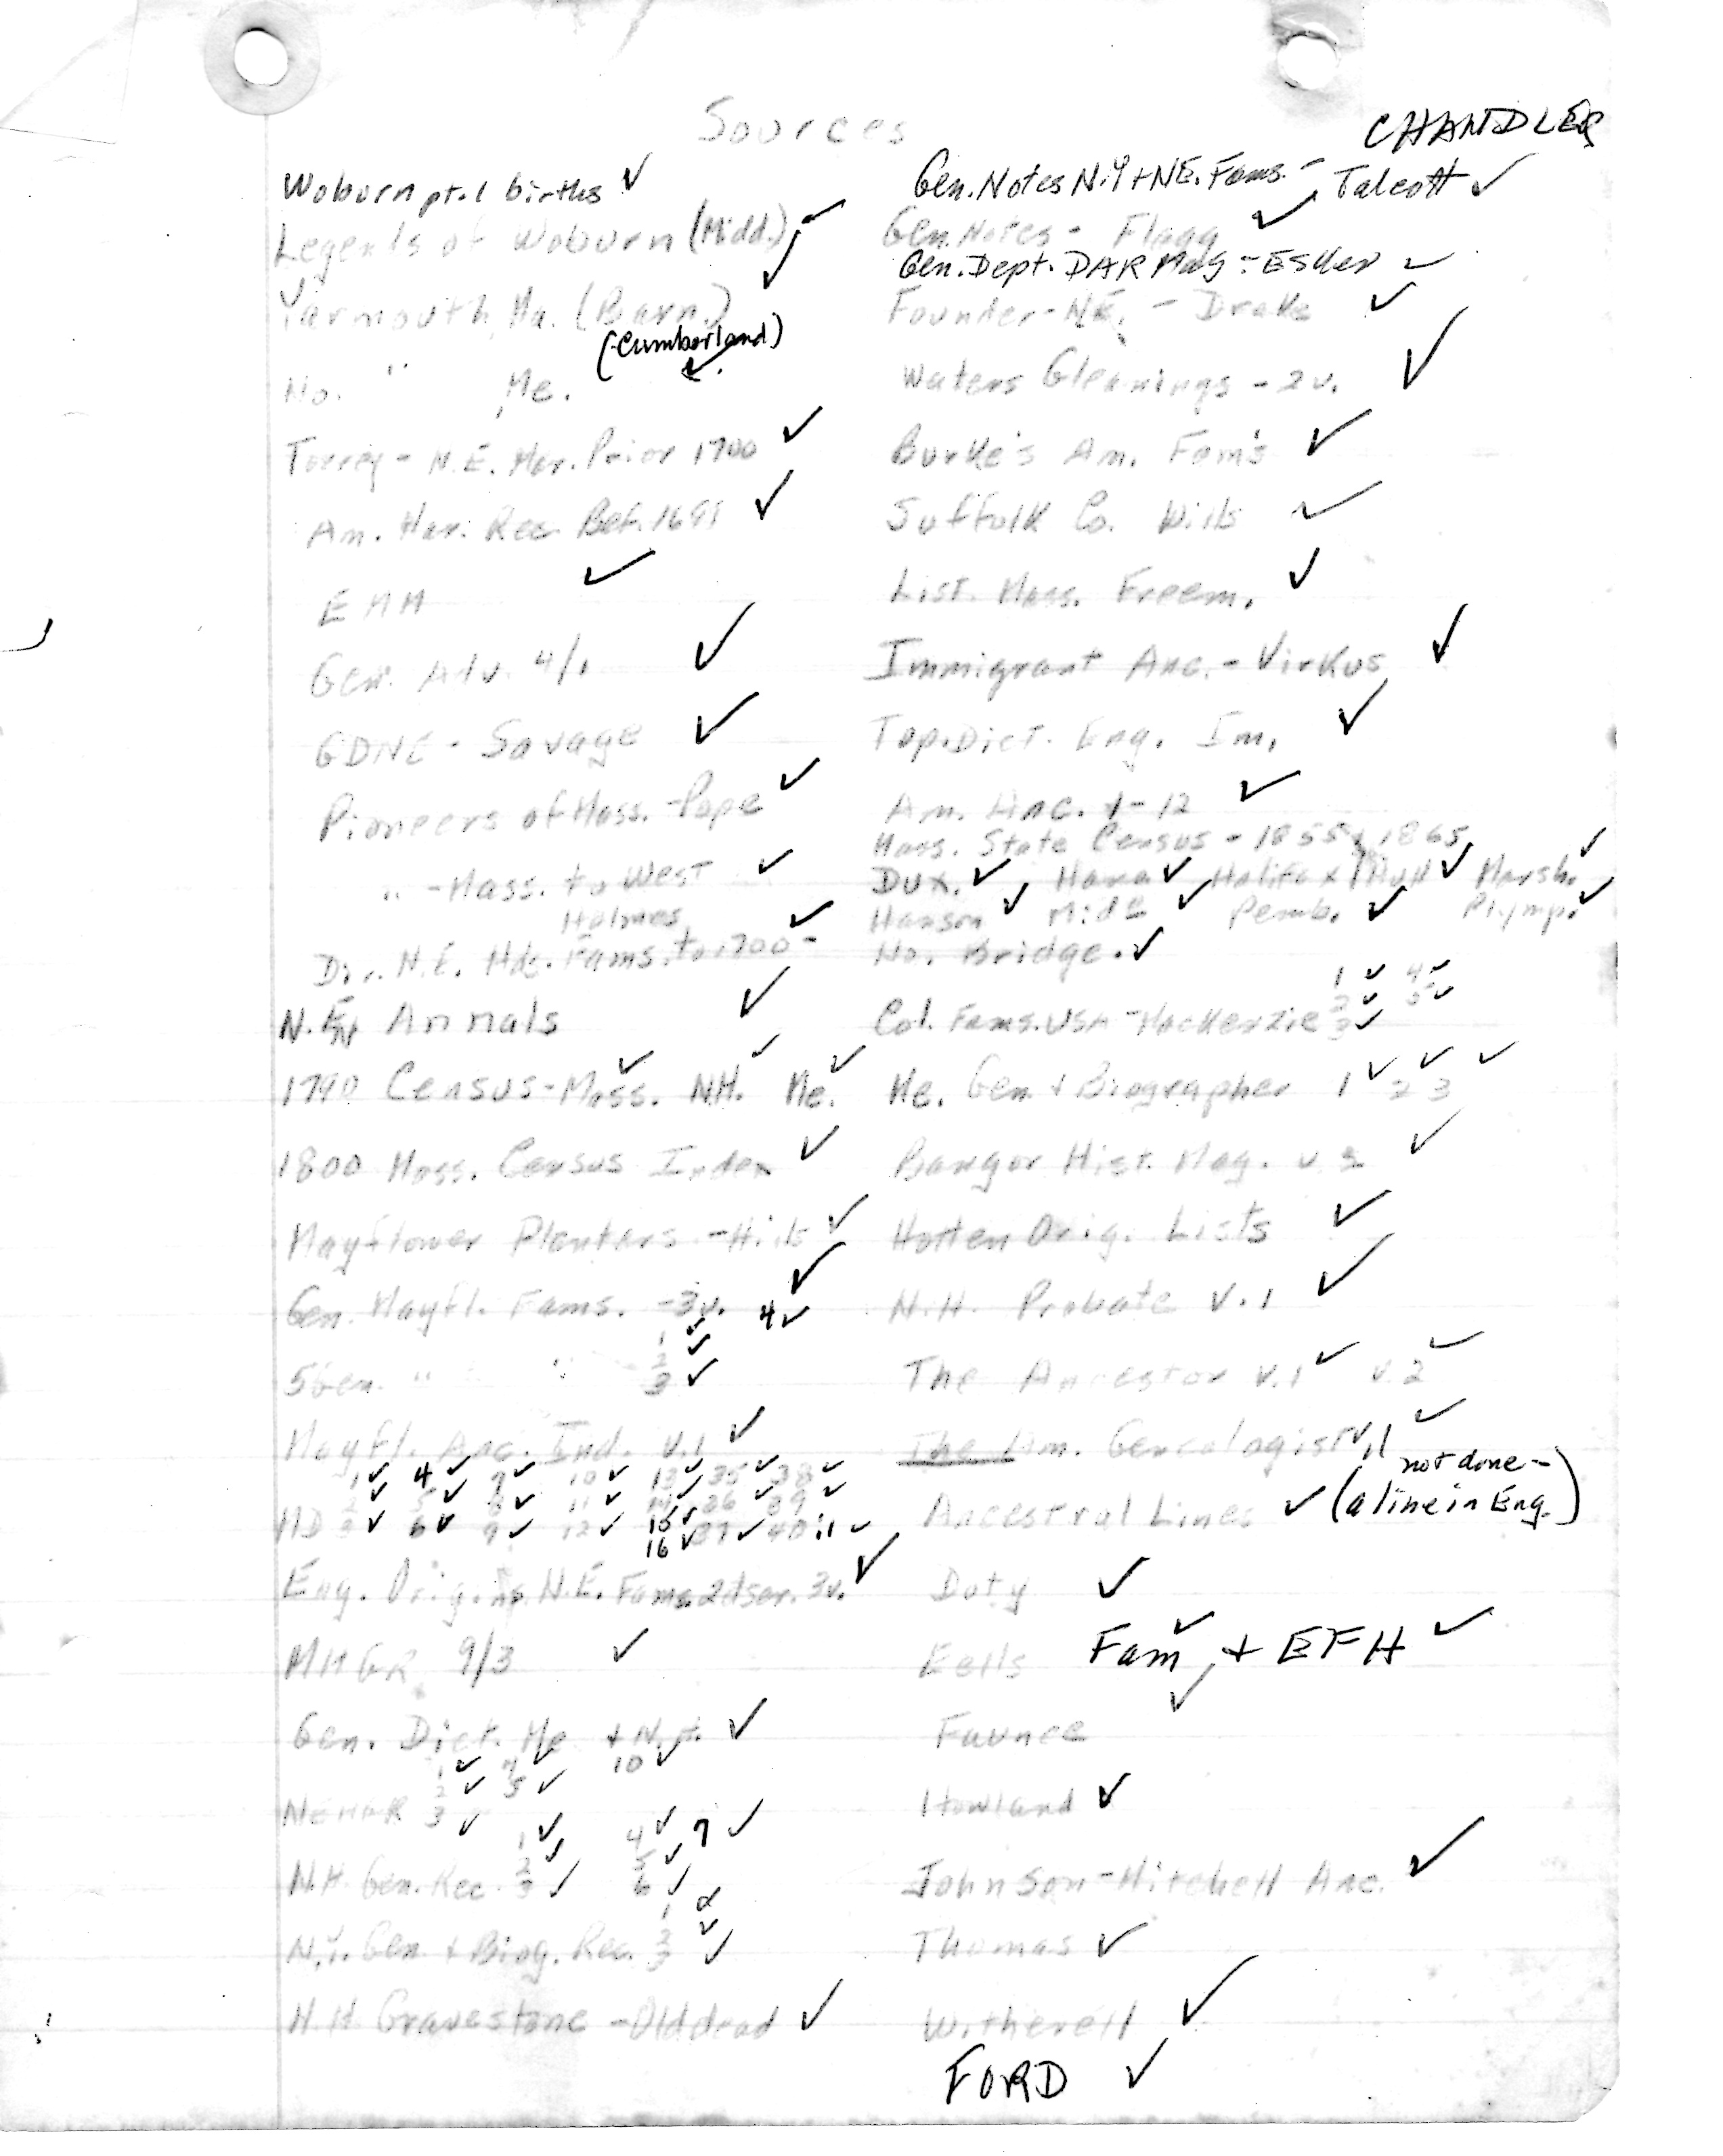 Sources
CHANDLER
Woburn pt. 1 births ✓
Legends of Woburn (Midd.) ✓
✓
Yarmouth, Ma. (Barn.) ✓
(Cumberland)
No. " , Me. ✓
Torrey - N.E. Mar. Prior 1700 ✓
Am. Mar. Rec. Bef. 1699 ✓
EMM ✓
Gen. Adv. 4/1 ✓
GDNE - Savage ✓
Pioneers of Mass. - Pope ✓
" - Mass. to West ✓
Holmes ✓
Dir. N.E. Hds. Fams. to 1700 -
N.E. Annals ✓
1790 Census - Mass. ✓ NH. ✓ Me. ✓
1800 Mass. Census Index ✓
Mayflower Planters - Hills ✓
Gen. Mayfl. Fams. - 3v. ✓ 4 ✓
5 Gen. " " 1 ✓ 2 ✓ 3 ✓
Mayfl. Anc. Ind. v.1 ✓
1 ✓ 4 ✓ 7 ✓ 10 ✓ 13 ✓ 35 ✓ 38 ✓
2 ✓ 5 ✓ 8 ✓ 11 ✓ 14 ✓ 36 ✓ 39 ✓
MD 3 ✓ 6 ✓ 9 ✓ 12 ✓ 15 ✓ 37 ✓ 40
16 ✓
Eng. Orig. N.E. Fams. 2d ser. 3v. ✓
MHGR 9/3 ✓
Gen. Dict. Me + N.H. ✓
1 ✓ 4 ✓ 10 ✓
2 ✓ 5 ✓
NEHGR 3 ✓
1 ✓ 4 ✓ 7 ✓
2 ✓ 5 ✓
N.H. Gen. Rec. 3 ✓ 6 ✓
1
2 ✓
N.Y. Gen. + Biog. Rec. 3 ✓
N.H. Gravestone - Old dead ✓
Gen. Notes N.Y + NE. Fams. - Talcott ✓
Gen. Notes - Flagg ✓
Gen. Dept. DAR Mag -
Founder - N.E. - Drake ✓
Waters Gleanings - 2 v. ✓
Burke's Am. Fam's ✓
Suffolk Co. Wills ✓
List. Mass. Freem. ✓
Immigrant Anc. - Virkus ✓
Top. Dict. Eng. Im. ✓
Am. Anc. 1-12 ✓
Mass. State Census - 1855, 1865
Dux. ✓ Hano ✓ Halifax Hull ✓ Marsh. ✓
Hanson ✓ Mid. ✓ Pemb. ✓ Plymp. ✓
No. Bridge. ✓
1 ✓ 4 ✓
2 ✓ 5 ✓
Col. Fams. USA - MacKenzie 3 ✓
Me. Gen + Biographer 1 ✓ 2 ✓ 3 ✓
Bangor Hist. Mag. v. ✓
Hotten Orig. Lists ✓
N.H. Probate v. 1 ✓
The Ancestor v.1 ✓ v.2 ✓
The Am. Genealogist ✓
not done -
Ancestral Lines ✓ (a line in Eng.)
Doty ✓
Eells Fam ✓ + EFH ✓
Faunce ✓
Howland ✓
Johnson - Mitchell Anc. ✓
Thomas ✓
Witherell ✓
FORD ✓